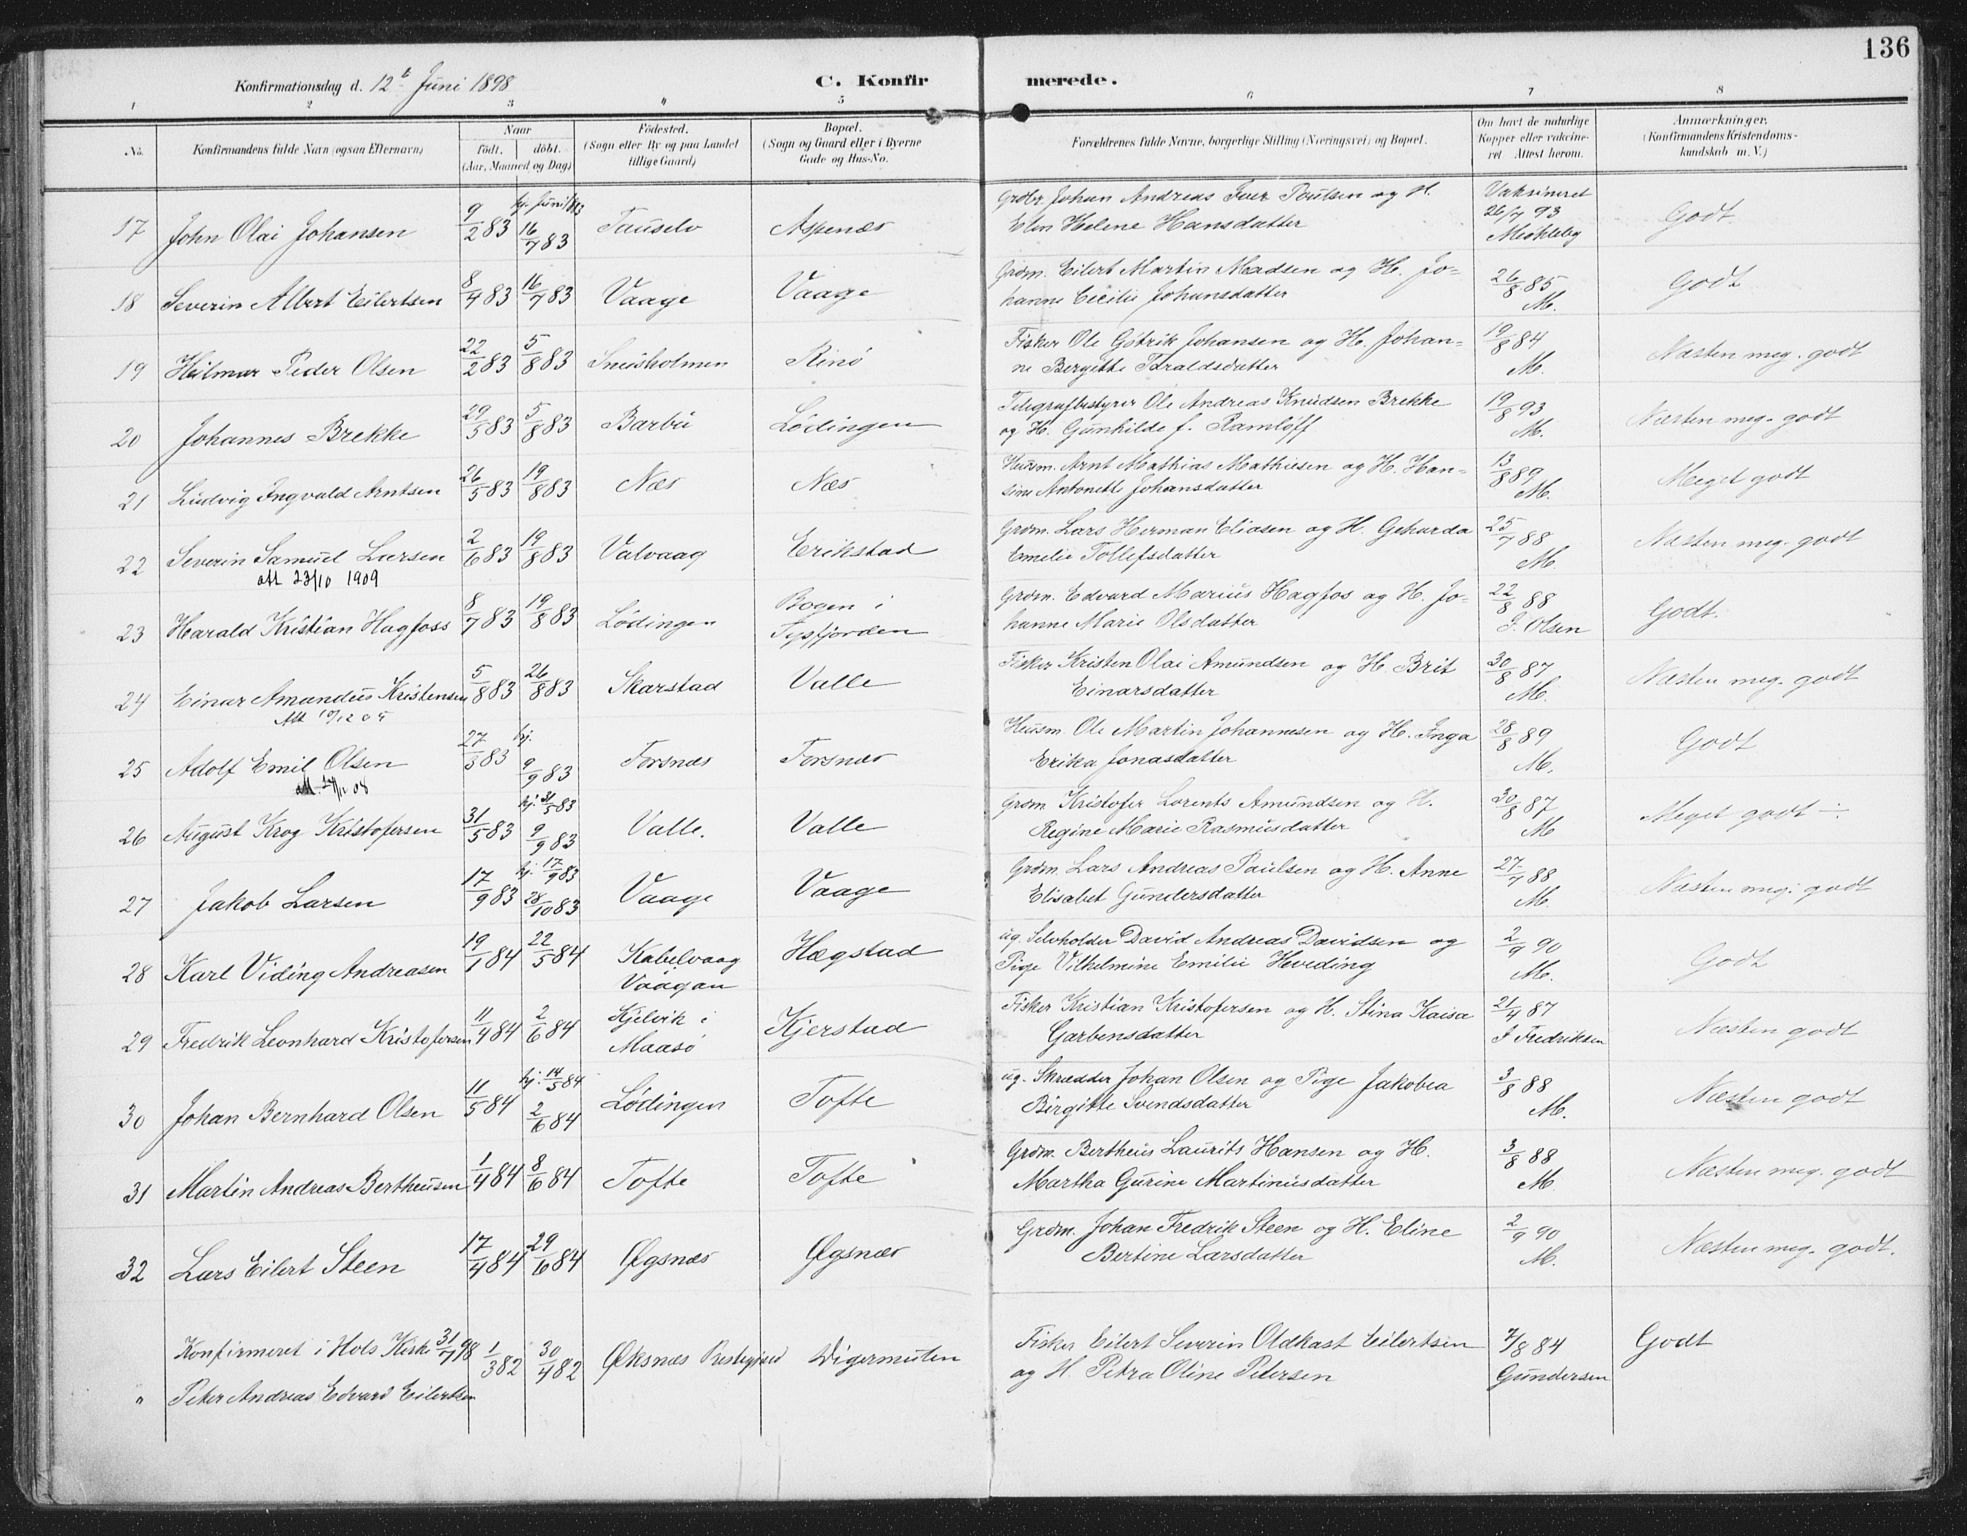 136
Konfirmationsdag d. 12t Juni 1898
C. Konfirmerede.
1 2 3 4 5 6 7 8
No. Konfirmandens fulde Navn (ogsaa Efternavn) Naar født. døbt. (Aar, Maaned og Dag) Fødested. (Sogn eller By og paa Landet tillige Gaard) Bopæl. (Sogn og Gaard eller i Byerne Gade og Hus-No. Forældrenes fulde Navne, borgerlige Stilling (Næringsvei) og Bopæl. Om havt de naturlige Kopper eller vakcineret Attest herom. Anmærkninger. (Konfirmandens Kristendomskundskab m. V.)
17 John Olai Johansen 9/2 83 hj. Juni 1883 16/7 83 Tauselv Aspenæs Grdbr. Johan Andreas Iver Poulsen og H. Elen Helene Hansdatter Vaksineret 26/7 93 Møhleby Godt.
18 Severin Albert Eilertsen 8/4 83 16/7 83 Vaage Vaage Grdm. Eilert Martin Madsen og H. Johanne Cecilie Johansdatter 26/8 85 M. Godt
19 Hilmar Peder Olsen 22/2 83 5/8 83 Snusholmen Rinø Fisker Ole Gotrik Johansen og H. Johanne Bergitte Taraldsdatter 19/8 84 M. Næsten meg. godt
20 Johannes Brekke 29/5 83 5/8 83 Barbu Lødingen Telegrafbestyrer Ole Andreas Knudsen Brekke og H. Gunhilde f. Ramløff 19/8 93 M. Næsten meg. godt
21 Ludvig Ingvald Arntsen 26/5 83 19/8 83 Næs Næs Husm. Arnt Mathias Mathiesen og H. Hansine Antonette Johansdatter 13/8 89 M. Meget godt
22 Severin Samuel Larsen 2/6 83 19/8 83 Valvaag Erikstad Grdm. Lars Herman Eliasen og H. Geharda Emelie Tollefsdatter 25/7 88 M. Næsten meg. godt
att 23/10 1909
23 Harald Kristian Hagfoss 8/7 83 19/8 83 Lødingen Bogen i Tysfjorden Grdm. Edvard Marius Hagfos og H. Johanne Marie Olsdatter 22/8 88 J. Olsen Godt.
24 Einar Amandus Kristensen 5/8 83 26/8 83 Skarstad Valle Fisker Kristen Olai Amundsen og H. Brit Einarsdatter 30/8 87 M. Næsten meg. godt
Att 19/12 05
25 Adolf Emil Olsen 27/5 83 hj. 9/9 83 Forsnæs Forsnæs Husm. Ole Martin Johannesen og H. Inga Erika Jonasdatter 28/8 89 M. Godt
att. 24/11 08
26 August Krog Kristofersen 31/5 83 hj. 31/5 83 9/9 83 Valle. Valle Grdm. Kristofer Lorents Amundsen og H. Regine Marie Rasmusdatter 30/8 87 M Meget godt ÷
27 Jakob Larsen 17/9 83 hj. 17/9 83 28/10 83 Vaage Vaage Grdm. Lars Andreas Paulsen og H. Anne Elisabet Gundersdatter 27/7 88 M. Næsten meg. godt
28 Karl Viding Andreasen 19/1 84 22/5 84 Kabelvaag Vaagan Hægstad ug. Selvholder David Andreas Davidsen og Pige Vilhelmine Emilie Hveding 2/9 90 M. Godt
29 Fredrik Leonhard Kristofersen 11/4 84 2/6 84 Kjelvik i Maasø Kjerstad Fisker Kristian Kristofersen og H. Stina Kaisa Garbensdatter 21/4 87 I Fredriksen Næsten godt
30 Johan Bernhard Olsen 11/5 84 hj. 14/5 84 2/6 84 Lødingen Tofte ug. Skrædder Johan Olsen og Pige Jakobea Birgitte Svendsdatter 3/8 88 M. Næsten godt
31 Martin Andreas Bertheusen 1/4 84 8/6 84 Tofte Tofte Grdm. Bertheus Laurits Hansen og H. Martha Gurine Martinusdatter 3/8 88 M Næsten meg. godt
32 Lars Eilert Steen 17/4 84 29/6 84 Øgsnæs Øgsnæs Grdm. Johan Fredrik Steen og H. Eline Bertine Larsdatter 2/9 90 M. Næsten meg. godt.
Konfirmeret i Hols Kirke 31/7 98
" Peter Andreas Edvard Eilertsen 1/3 82 30/4 82 Øksnæs Prestegjæld Digermulen Fisker Eilert Severin Oldkast Eilertsen og H. Petra Oline Petersen 7/8 84 Gundersen Godt